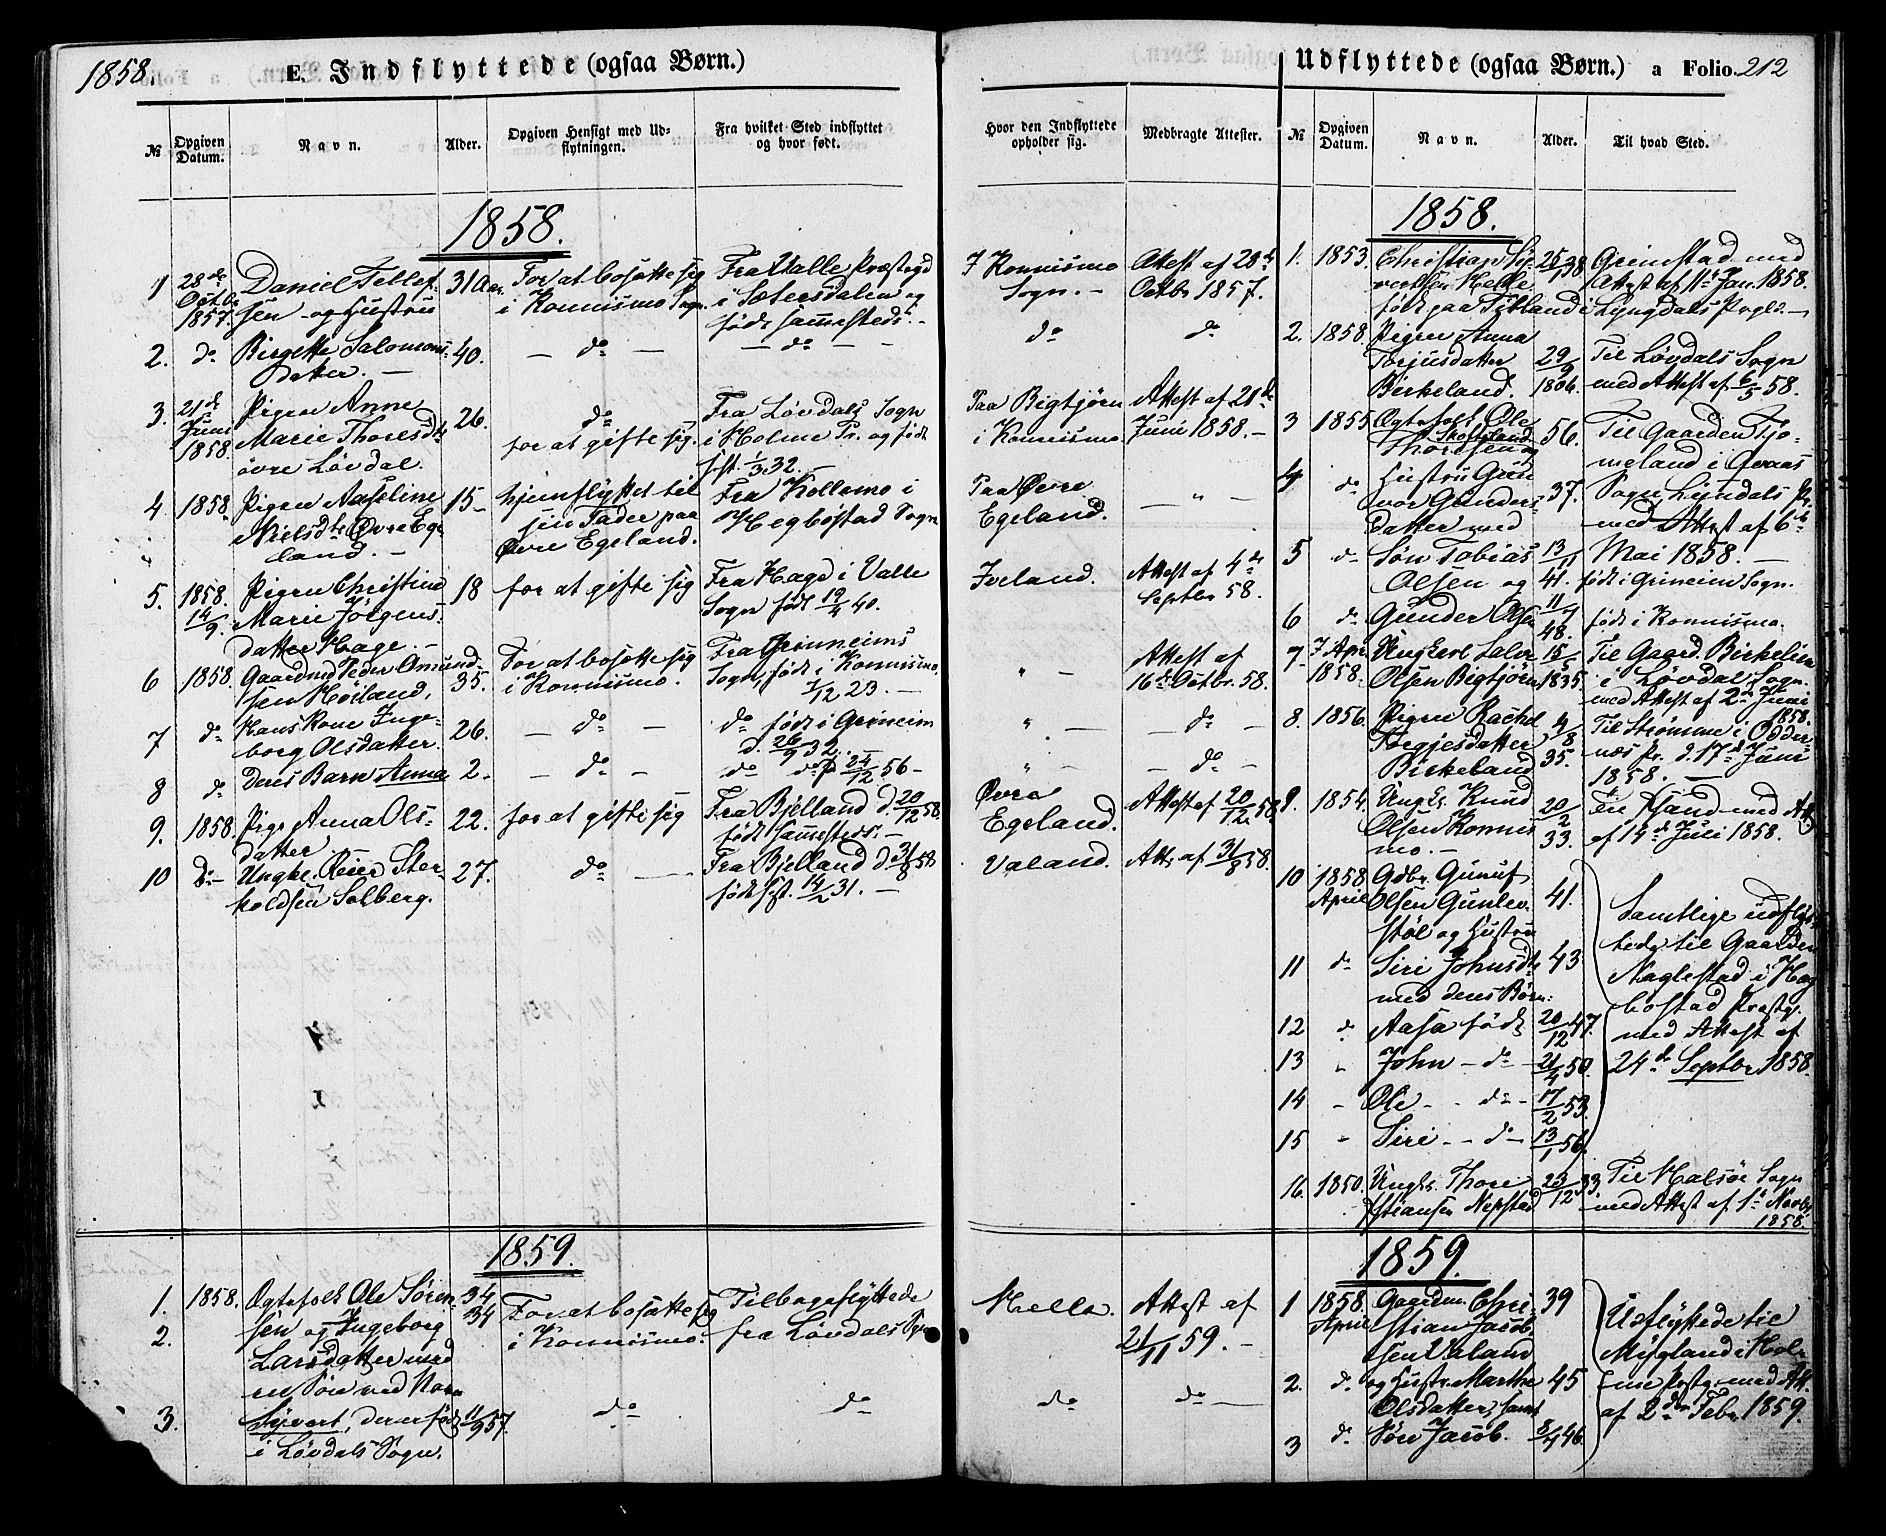 1858.
E. Indflyttede (ogsaa Børn.)
№
Opgiven Datum.
Navn.
Alder.
Opgiven Hensigt med Udflytningen.
Fra hvilket Sted indflyttet og hvor født.
Hvor den Indflyttede opholder sig.
Medbragte Attester.
1858.
1 28de Octbr 1857. Daniel Tellefsen og Hustru 31 Aar For at bosætte sig i Konnismo Sogn. Fra Valle Præstegd i Sætersdalen og født sammesteds. I Konnismo Sogn. Attest af 28de Octbr 1857.
2. do Birgette Salomonsdatter. 40. do do do do
3. 21de Juni 1858 Pigen Anne Marie Thoresdtr øvre Løvdal. 26. do for at gifte sig. Fra Løvdals Sogn i Holme Pr. og født sst. 1/3 32. Paa Bigtjørn i Konnismo Attest af 21de Juni 1858.
4 1858. Pigen Aasoline Nielsdtr Øvre Egeland. 15 hjemflyttet til sin Fader paa Øvre Egeland. Fra Kollemo i Hegbostad Sogn Paa Øvre Egeland. "
5. 1858. 14/9. Pigen Christine Marie Jörgensdatter Hage. 18 for at gifte sig Fra Hage i Valle Sogn født 19/4 40. Iveland. Attest af 4de Septbr 58.
6 1858. Gaardmd Peder Amundsen Høiland, 35. For at bosætte sig i Konnismo. Fra Grinneims Sogn, født i Konnismo, 1/12 23. " Attest af 16de Octbr. 58.
7 do Hans Kone Ingeborg Olsdatter. 26. do do født i Grineim d. 26/9 32. " do
8 do Deres Barn Anna 2. do do do f. 24/12 56 " do
9. 1858. Pige Anna Olsdatter 22. for at gifte sig Fra Bjelland d. 20/12 58. født sammesteds. Øvre Egeland. Attest af 20/12 58
10 do Ungk. Reier Sterkoldsen Solberg. 27. do Fra Bjelland d 31/8 58 født sst. 14/2 31. Valand. Att. af 31/8 58.
1859.
1. 1858. Ogtefolk Ole Sørensen og 34
2. Ingeborg Larsdatter med en Søn ved Navn 34 For at bosætte sig i Konnismo. Tilbageflyttede fra Løvdals Sogn Helle. Attest af 21/11 59.
3. Syvert, der er født i Løvdals Sogn. 11/9 57. do do do do
Udflyttede (ogsaa Børn.) a Folio. 212
№
Opgiven Datum.
Navn.
Alder.
Til hvad Sted.
1858.
1. 1853. Christian Syvertsen Helle født paa Tytland i Lyngdals Prgld. 25/1 38 Grimstad med Attest af 11te Jan. 1858.
2. 1858. Pigen Anna Torjusdatter Birkeland. 29/9 1806. Til Løvdals Sogn med Attest af 6/5 58.
3 1855 Ogtefolk Ole Thordsen og 56. Til Gaarden Tjomeland i Qvaas Sogn Lyndals Pr. med Attest af 6te Mai 1858.
4 do Hustru Gunvor Gundersdatter med 37.
5 do Søn Tobias Olsen og 13/11 41. født i Grineim Sogn.
6 do Gunder Olsen 11/7 48. født i Konnismo.
7 7 Apr. 1858. Ungkarl Salve Olsen Bigtjørn 15/5 1835. Til Gaard Birkelien i Løvdal Sogn. med Attest af 2den Juni 1858.
8. 1856. Pigen Rachel Torgjesdatter Birkeland 4/8 35. Til Strømme i Oddernæs Pr. d. 17de Juni 1858.
9. 1854. Ungk. Knud Olsen Konnismo. 20/2 33. Til Xsand med Att. af 14de Juni 1858.
10 1858 April Gdbr. Gunuf Olsen Gunlevstøl og Hustru 41. Samtlige udflyttede til Gaarden Naglestad i Hægbostad Præstg. med Attest af 24de Septbr 1858.
11 do Siri Johnsdtr med deres Børn: 43
12 do Aasa født 20/12 47.
13 " John do 21/4 50.
14 " Ole do 17/2 53
15 " Siri do 13/1 56.
16. 1850. Ungk. Thore Xstiansen Nepstad 23/12 33 Til Halsøe Sogn med Attest af 1te Novbr 1858.
1859.
1 1858. April Gaardm. Christian Jacobsen Valand 39 Udflyttede til Mygland i Holme Prstg. med Att. af 2den Febr 1859.
2. do og Hustr. Marthe Olsdatter, samt 45
3 do Søn Jacob. 8/4 46.